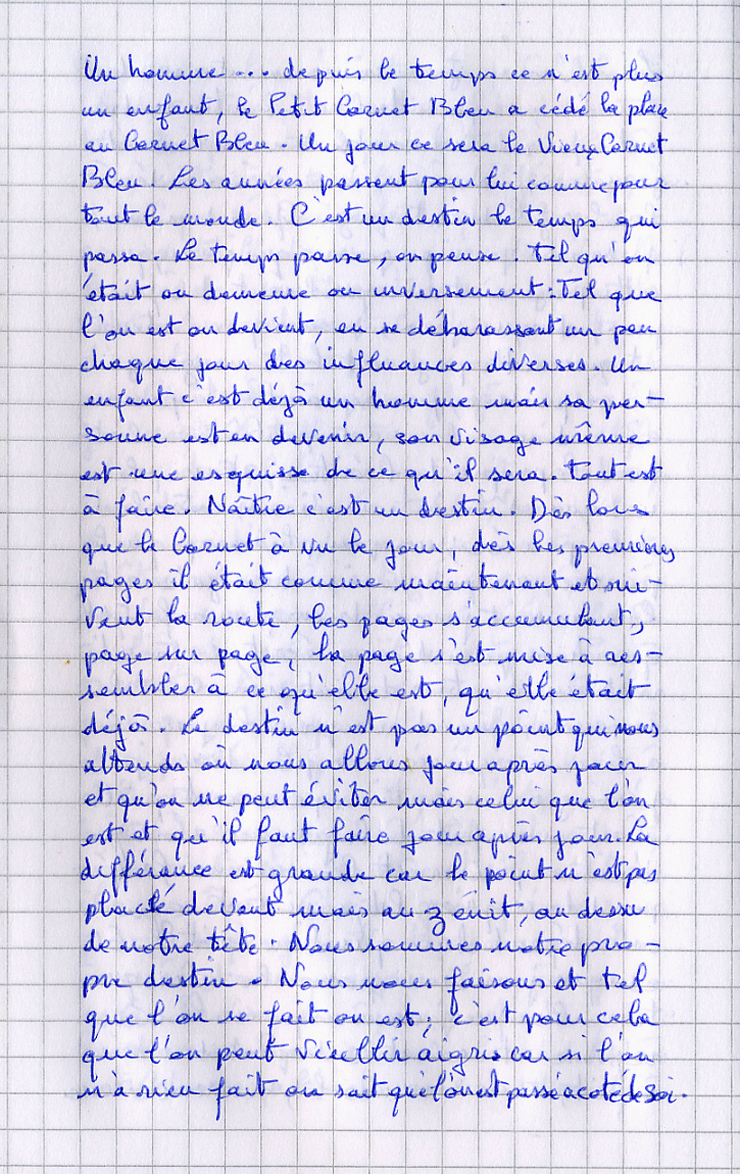 Un homme... depuis le temps ce n'est plus
un enfant, le Petit Carnet Bleu a cédé la place
au Carnet Bleu. Un jour ce sera le Vieux Carnet
Bleu. Les années passent pour lui comme pour
tout le monde. C'est un destin le temps qui
passa. Le temps passe, on pense. Tel qu'on
était on demeure ou inversement: Tel que
l'on est on devient, en se débarassant un peu
chaque jour des influances diverses. Un
enfant c'est déjà un homme mais sa per-
sonne est en devenir, son visage même
est une esquisse de ce qu'il sera. Tout est
à faire. Naître c'est un destin. Dès lors
que le Carnet à vu le jour, dès les premières
pages il était comme maintenant et sui-
vant la route, les pages s'accumulant,
page sur page, la page s'est mise à res-
sembler à ce qu'elle est, qu'elle était
déjà. Le destin n'est pas un point qui nous
attends où nous allons jour après jour
et qu'on ne peut éviter mais celui que l'on
est et qu'il faut faire jour après jour. La
différance est grande car le point n'est pas
placé devant mais au zénit, au dessu
de notre tête. Nous sommes notre pro-
pre destin. Nous nous faisons et tel
que l'on se fait on est; c'est pour cela
que l'on peut vieillir aigris car si l'on
n'à rien fait on sait que l'on est passé a coté de soi.